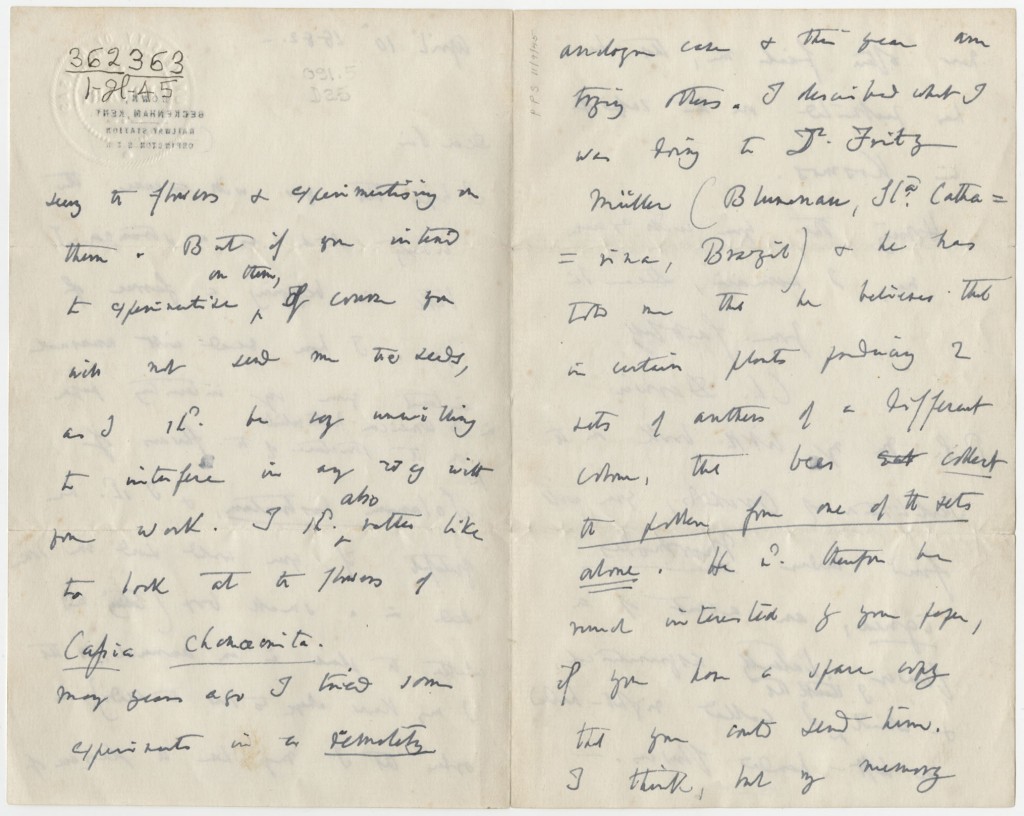 362363
1-gl-45
DOWN,
BECKENHAM, KENT.
RAILWAY STATION
ORPINGTON. S.E.R.
seeing the flowers & experimentising on
them. But if you intend
to experimentise on them, of course you
will not send me the seeds,
as I shd. be very unwilling
to interfere in any way with
your work. I shd. also rather like
to look at the flowers of
Cassia Chamæcrista.
Many years ago I tried some
experiments in a remotely
analogous case & this year am
trying others. I described what I
was doing to Dr. Fritz
Müller (Blumenau, Sta. Catha=
=rina, Brazil) & he has
told me that he believes that
in certain plants producing 2
sets of anthers of a different
colour, the bees collect
the pollen from one of the sets
alone. He wd. therefore be
much interested by your paper,
if you have a spare copy
that you could send him.
I think, but my memory